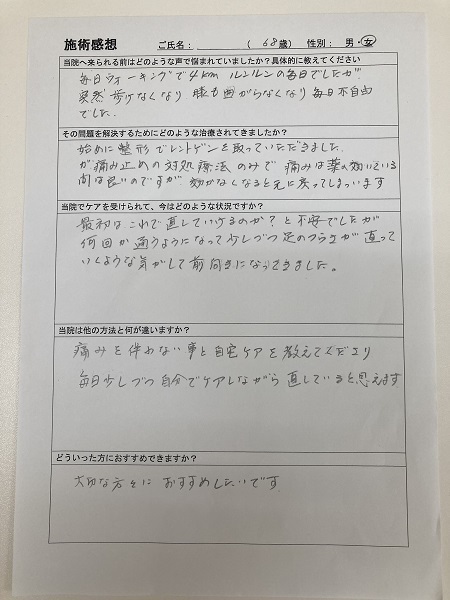 施術感想 ご氏名： （ 68歳） 性別： 男・女
当院へ来られる前はどのような声で悩まれていましたか？具体的に教えてください
毎日ウォーキングで4km ルンルンの毎日でしたが
突然歩けなくなり 膝も曲がらなくなり毎日不自由
でした。
その問題を解決するためにどのような治療されてきましたか？
始めに整形でレントゲンを取っていただきました。
が痛み止めの対処療法のみで 痛みは薬の効いている
間は良いのですが 効かなくなると元に戻ってしまいます
当院でケアを受けられて、今はどのような状況ですか？
最初はこれで直していけるのか？と不安でしたが
何回か通うようになって少しづつ足のつらさが直って
いくような気がして前向きになってきました。
当院は他の方法と何が違いますか？
痛みを伴わない事と自宅ケアを教えてくださり
毎日少しづつ自分でケアしながら直していると思えます
どういった方におすすめできますか？
大切な方々におすすめしたいです